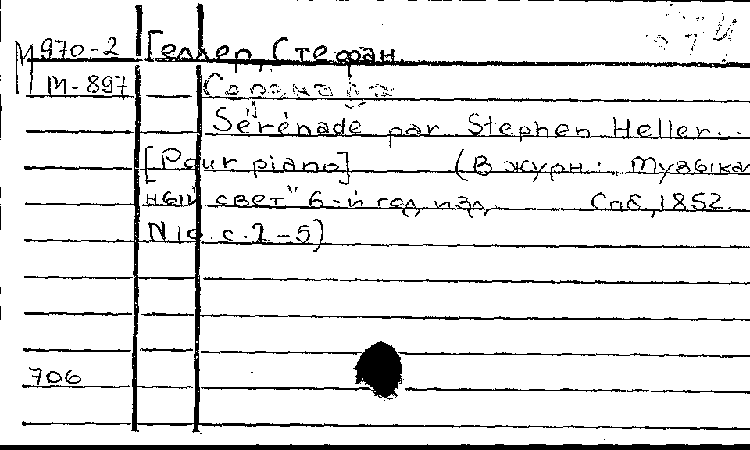 М 970-2 Геллер, Стефан.
М-897 Серенада
"Sérénade par Stephen Heller..
[Pour piano] (В журн: Музыкаль
ный свет" 6-й год изд. Спб, 1852.
N 10. с. 2-5)
706